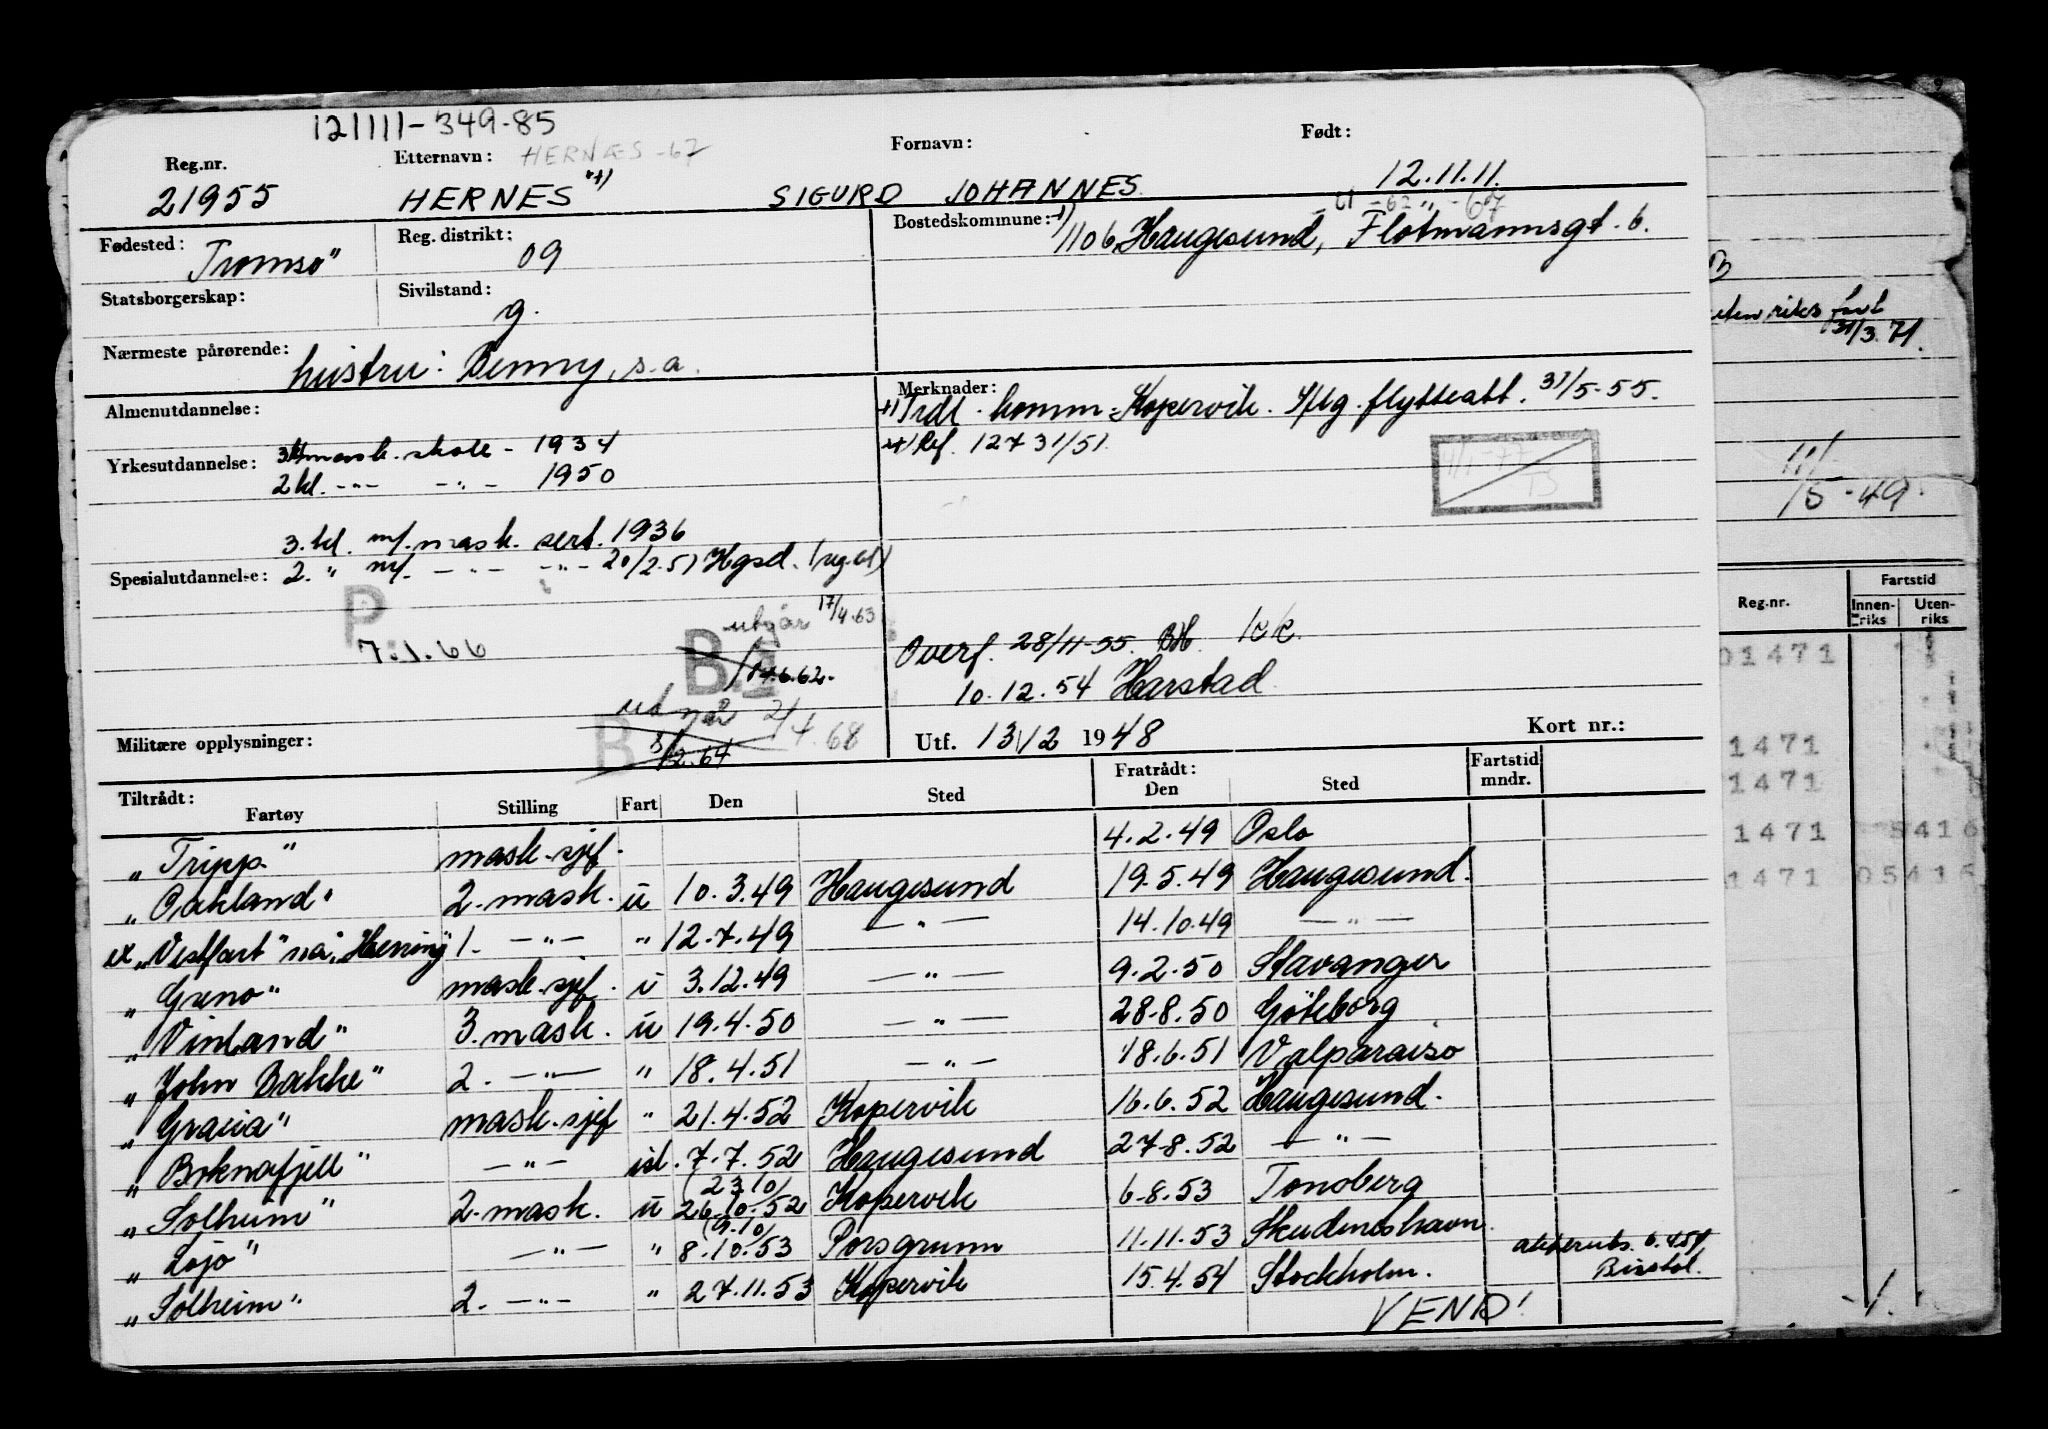 121111-349-85
Reg.nr. Etternavn: HERNÆS -67 Fornavn: Født:
21955 HERNES +) SIGURD JOHANNES 12.11.11.
Fødested: Reg. distrikt: Bostedskommune: +)
Tromsø 09 1106 Haugesund, Flotmannsgt. 6.
61 - 62 " - 67
Statsborgerskap: Sivilstand:
g.
Nærmeste pårørende:
hustru: Benny, s.a.
Almenutdannelse: Merknader:
+) Tidl. komm. Kopervik. Iflg. flytteatt. 31/5-55.
++) Ref. 12731/51.
Yrkesutdannelse: 3 kl mask. skole - 1934
2 kl. -"- -"- 1950
3. kl. m/. mask. sert. 1936
Spesialutdannelse: 2. " m/. -"- -"- 20/2.51 Hgsd.
P
7.1.66
utgår 17/4.63
B.2
14.6.62.
utgår 2/4.68
B
8/12.64
Overf. 28/11-55. BH.
10.12.54 Harstad
Militære opplysninger: Utf. 13/2 1948 Kort nr.:
Tiltrådt: Fratrådt: Fartstid
Fartøy Stilling Fart Den Sted Den Sted mndr.
"Tripp" mask.sjef. 4.2.49 Oslo
"Oakland" 2. mask. u 10.3.49 Haugesund 19.5.49 Haugesund.
ex "Vestfart" nå "Herring" 1. -"- " 12.7.49 -"- 14.10.49 -"-
"Greno" mask.sjef. u 3.12.49 -"- 9.2.50 Stavanger
"Vinland" 3. mask. u 19.4.50 -"- 28.8.50 Göteborg
"John Bakke" 2. -"- " 18.4.51 -"- 18.6.51 Valparaiso
"Gracia" mask.sjef " 21.4.52 Kopervik 16.6.52 Haugesund.
"Boknafjell" -"- isl. 7.7.52 Haugesund 27.8.52 -"-
(23.10)
"Solheim" 2. mask. u 26.10.52 Kopervik 6.8.53 Tønsberg
(9.10)
"Lojo" -"- " 8.10.53 Porsgrunn 11.11.53 Skudeneshavn
"Solheim" 2. -"- " 27.11.53 Kopervik 15.4.54 Stockholm.
6.4.54
Bristol.
VEND!
utenriks fart
31/3.71.
/5-49.
Reg.nr. Fartstid
Innenriks Utenriks
01471
1471
1471
1471 5416
1471 05416